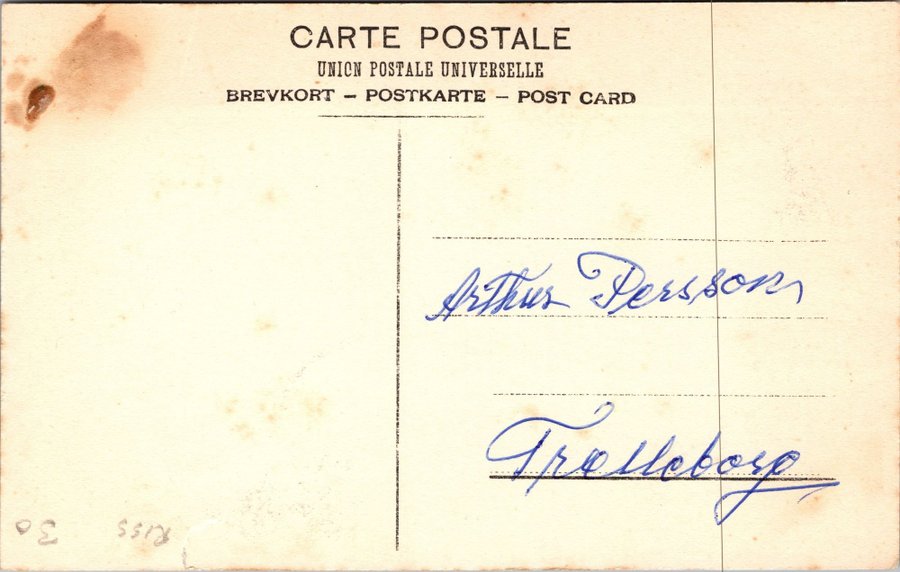 CARTE POSTALE
UNION POSTALE UNIVERSELLE
BREVKORT – POSTKARTE – POST CARD
Arthur Persson
Trelleborg
30